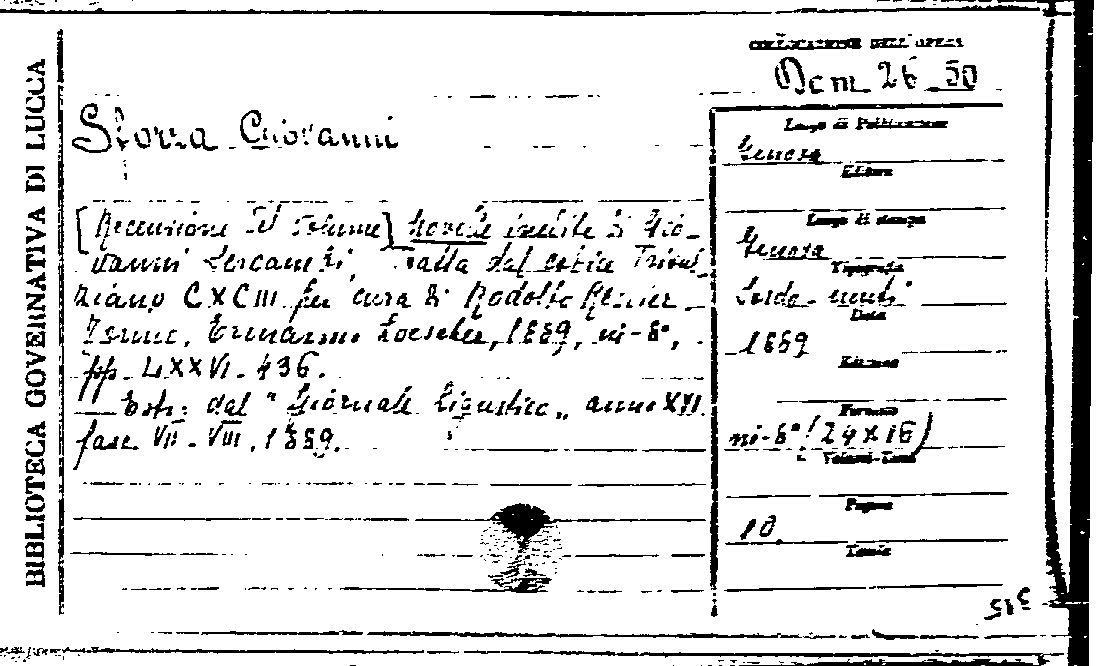 BIBLIOTECA GOVERNATIVA DI LUCCA
COLLOCAZIONE DELL'OPERA
Dcm 26 50
Sforza Giovanni
[Recensione del volume] Novelle inedite di Gio-
vanni Sercambi, Tratte dal codice Trivul
ziano CXCIII per cura di Rodolfo Renier
Torino, Ermanno Loescher, 1889, in-8°,
pp. LXXVI-436.
Estr. dal "Giornale Ligustico" anno XVI.
fasc. VII-VIII, 1889.
Luogo di Pubblicazione
Genova
Editore
Luogo di stampa
Genova
Tipografia
Sordo-muti
Data
1889
Edizione
Formato
in-8° (24x16)
Volumi-Tomi
Pagine
10
Tavole
315